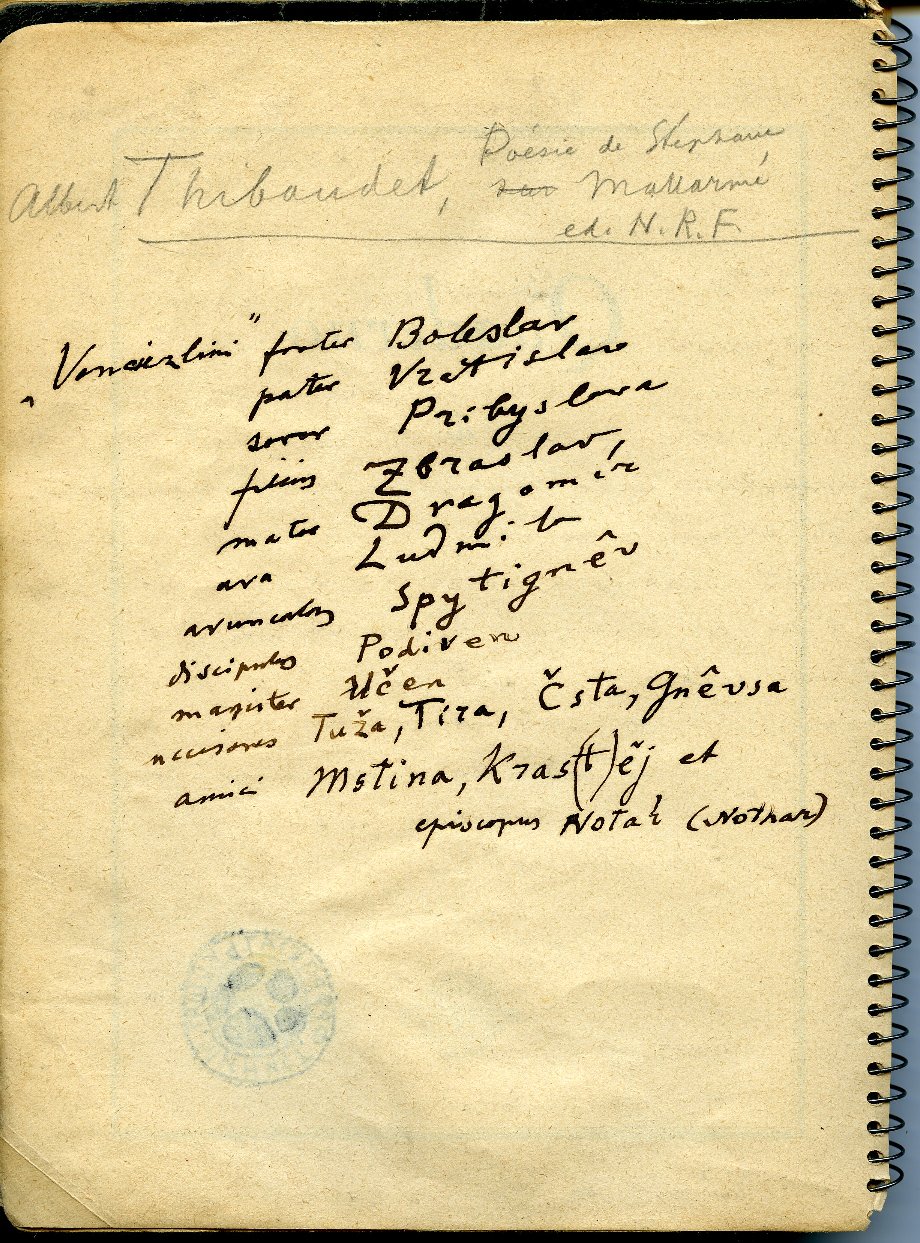 Albert Thibaudet, Poésie de Stéphane
sur Mallarmé
ed. N.R.F.
„Venceizlini" frater Boleslav
pater Vratislav
soror Pribyslava
filius Zbraslav,
mater Dragomir
ava Ludmila
avunculus Spytignêv
discipulus Podiven
magister Učen
occisores Tuža, Tira, Čsta, Gnêvsa
amici Mstina, Kras(t)ěj et
episcopus Notař (Nothar)